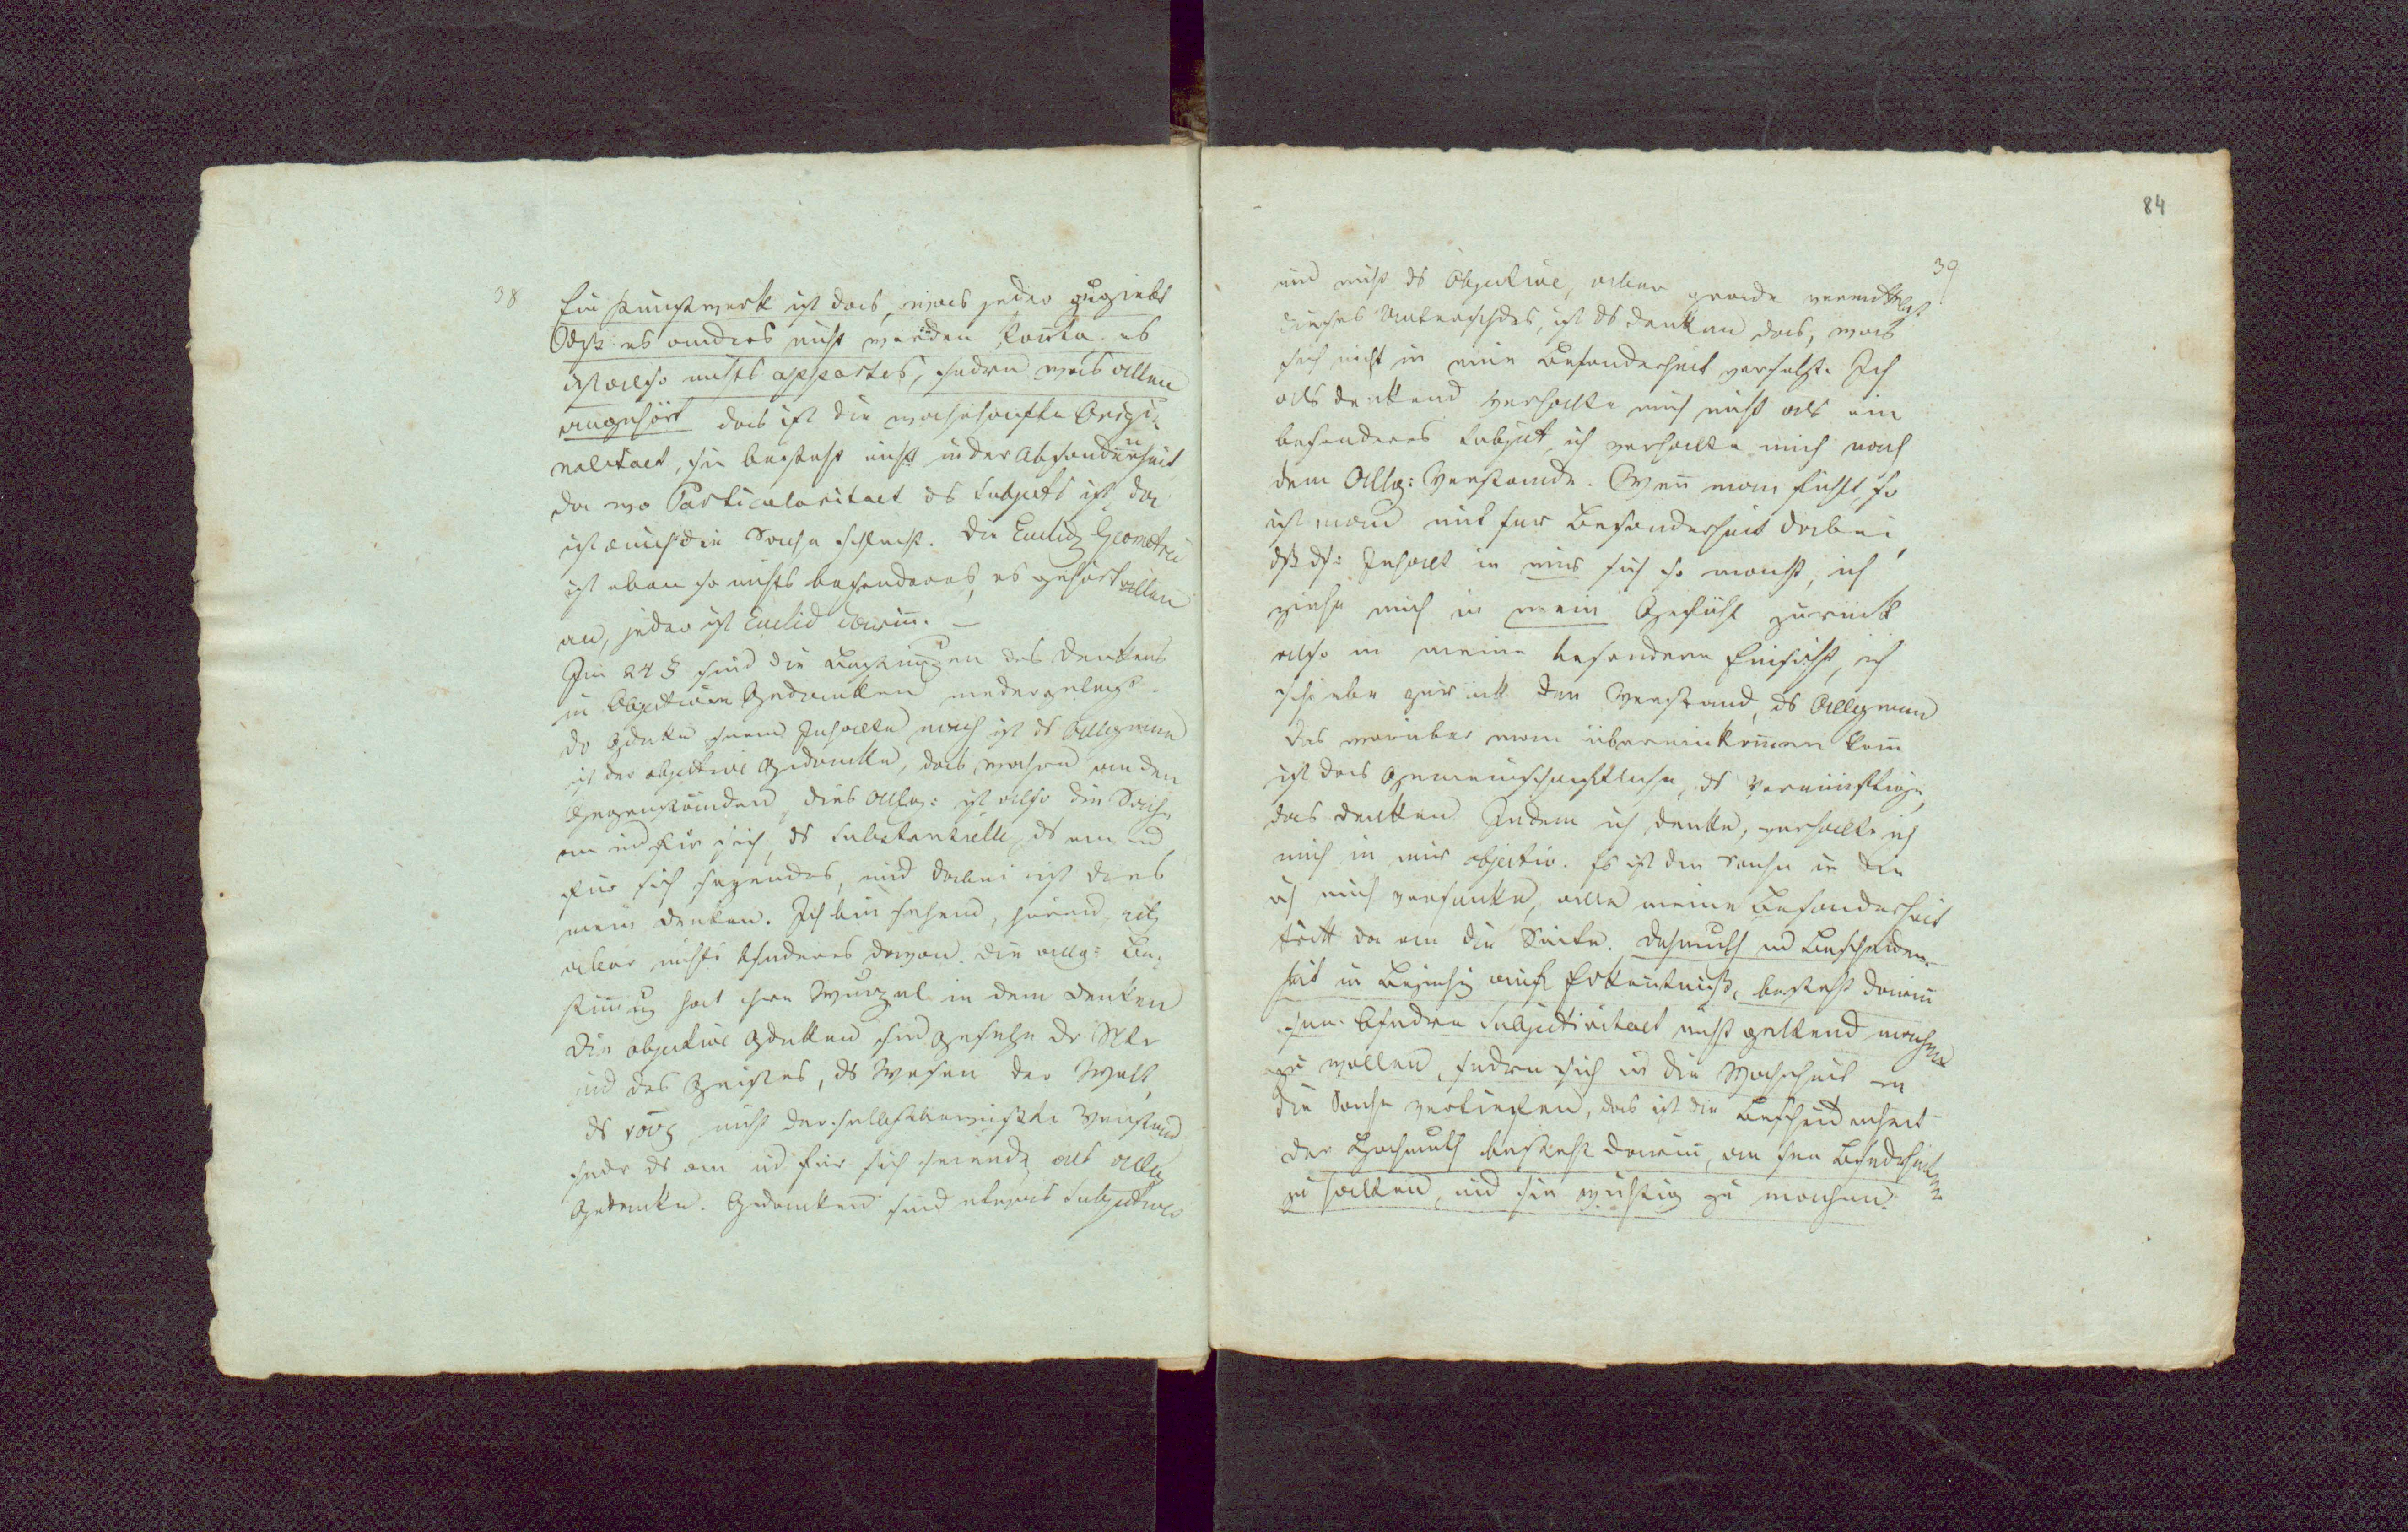 38
Ein Kunstwerk ist das, was jeder zugiebt
daß es anders nicht werden konte. es
ist also nichts appartes, sondern was allen
angehört das ist die wahrhafte Origi-
nalitaet, sie besteht nicht in der Absonderheit
da wo Particularitaet ds Subjects ist, da
ist auch die Sache schlecht. Die Euclid Geometrie
ist eben so nichts besonderes, es gehört allen
an, jeder ist Euclid darin. —
Im 24 § sind die Bestimungen des Denkens
in objectiven Gedanken niedergelegt.
dr Gdanke seinem Inhalte nach ist ds Allgemeine
ist der objective Gedanke, das wahre an den
Gegenständen, dies Allg: ist also die Sache
an und für sich, ds Substantielle, ds an ud
für sich seyendes, und dabei ist dies
mein Denken. Ich bin sehend, hörend, etc
aber nichts bsonderes davon. Die allg: Be-
stimug hat ihre Wurzel in dem Denken
Die objective Gdanken sind Gesetze dr Ntr
und des Geistes, ds Wesen der Welt,
ds νους nicht der selbstbewußte Verstand
sondr ds an ud für sich seiende als allg
Gedanke. Gedanken sind etwas Subjectives
84
39
und nicht ds Objective, aber grade vermittelst
dieses Unterschds, ist ds Denken das, was
sich nicht in eine Besonderheit versetzt. Ich
als denkend verhalte mich nicht als ein
besonderes Subject, ich verhalte mich nach
dem Allg: Verstande. Wen man fühlt, so
ist man mit sr Besonderheit dabei,
dß ds: Inhalt in mir sich so macht, ich
ziehe mich in mein Gefühl zurück
also in meine besondere Einsicht, ich
schiebe zurück den Verstand, ds Allgemein
das worüber man übereinkomen kan
ist das Gemeinschaftliche, ds Vernünftige,
das Denken. Indem ich denke, verhalte ich
mich in mir objectiv. Es ist die Sache in die
ich mich versenke, alle meine Besonderheit
tritt da an die Seite. Demuth ud Bescheiden-
heit in Beziehg auf Erkentniß, besteht darin
seine bsondre Subjectivitaet nicht geltend machen
zu wollen, sondrn sich in die Wahrheit in
die Sache vertiefen, das ist die Bescheidenheit
der Hochmuth besteht darin, an sen Bsondrheiten
zu halten, und sie wichtig zu machen.